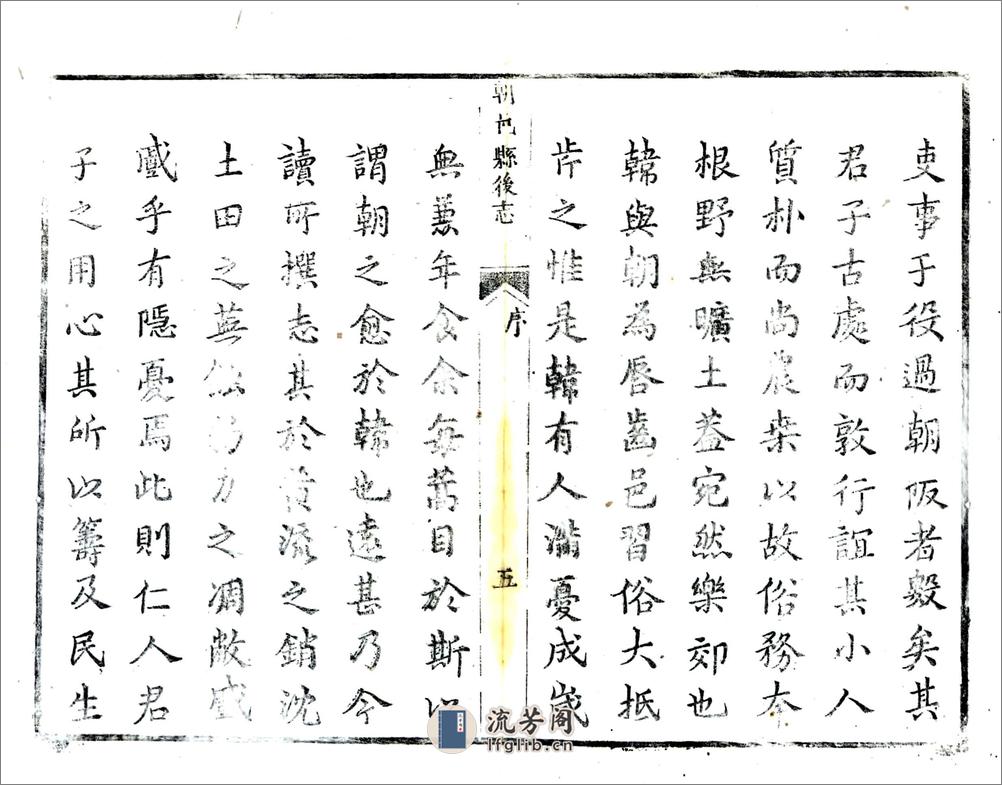 吏事于役過朝阪者數矣其
君子古處而敦行誼其小人
質朴而尚農桒以故俗務本
根野無曠土葢宛然樂郊也
韓與朝為唇齒邑習俗大抵
之惟是韓有人滿憂成歲
朝邑縣後志
序
五
無兼年食余每蒿目於斯以
謂朝之愈於韓也遠甚乃今
讀所撰志其於黃流之銷沈
土田之蕪力之凋敝慼
慼乎有隱憂焉此則仁人君
子之用心其所以籌及民生
流芳阁
lfglib.cn